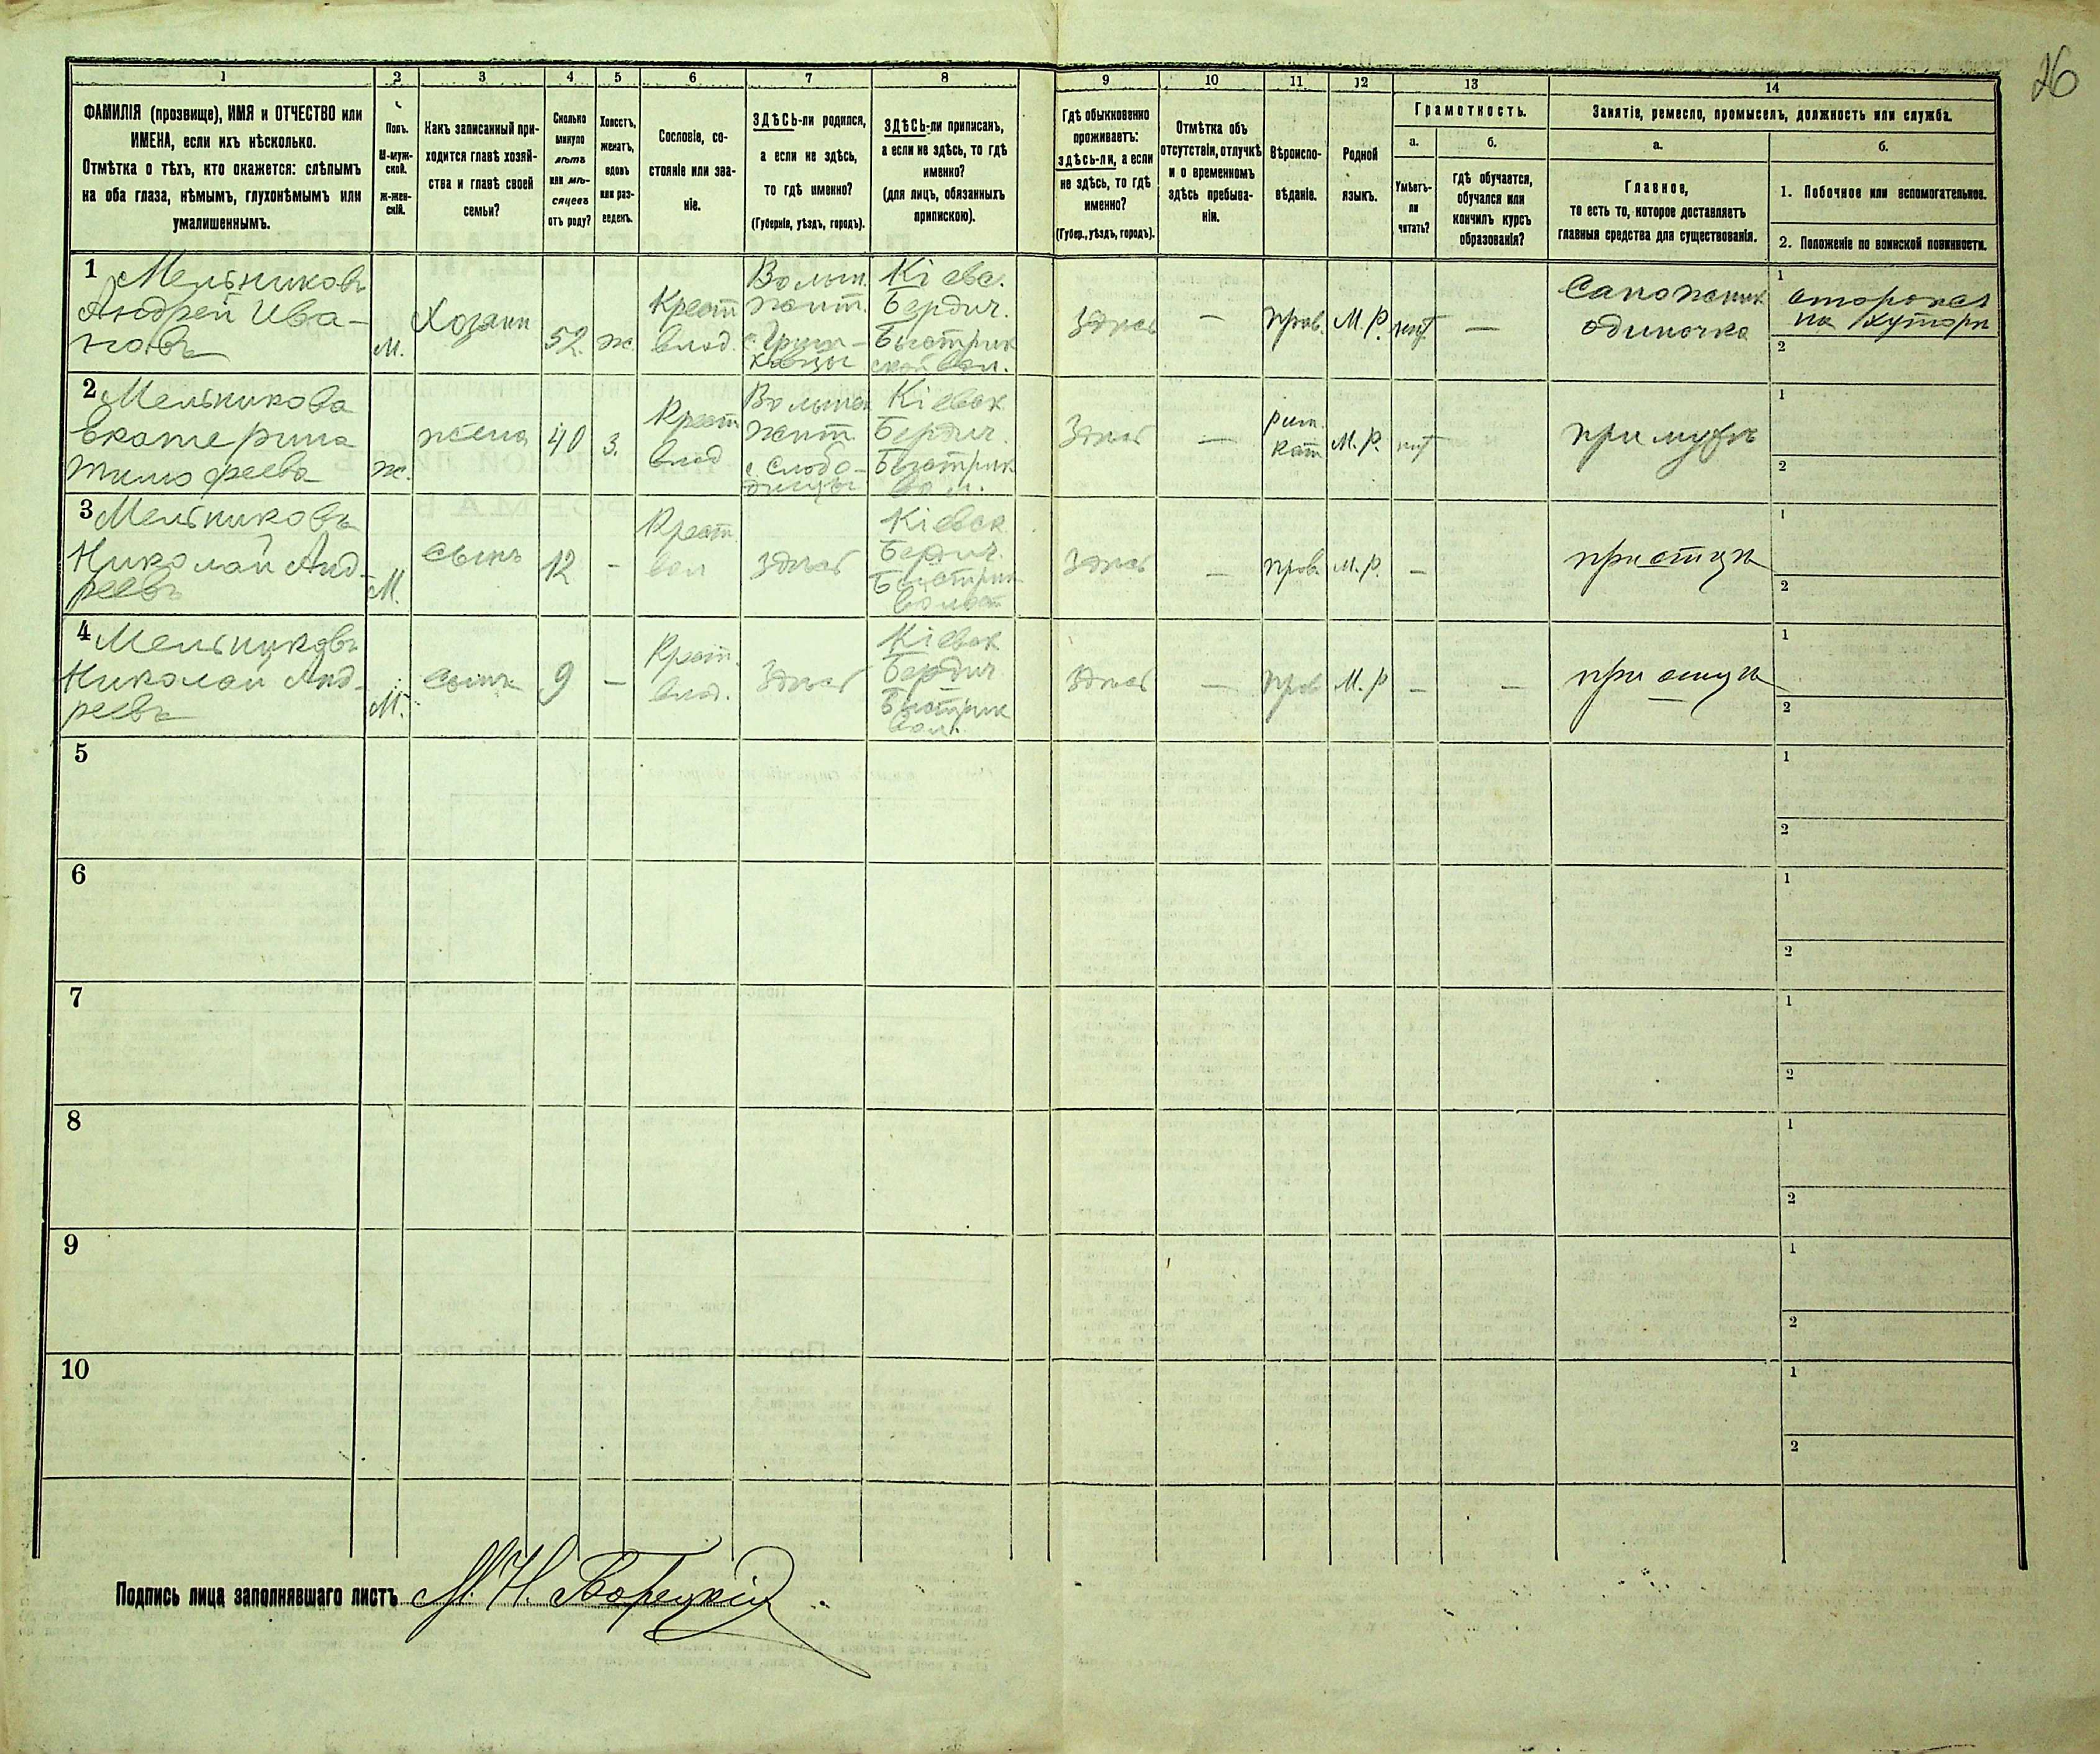 26
1 2 3 4 5 6 7 8 9 10 11 12 13 14
ФАМИЛІЯ (прозвище), ИМЯ и ОТЧЕСТВО или
ИМЕНА, если ихъ нѣсколько.
Отмѣтка о тѣхъ, кто окажется: слѣпымъ
на оба глаза, нѣмымъ, глухонѣмымъ или
умалишеннымъ.
Полъ.
М-муж-
ской.
ж-жен-
скій.
Какъ записанный при-
ходится главѣ хозяй-
ства и главѣ своей
семьи?
Сколько
минуло
лѣтъ
или мѣ-
сяцевъ
отъ роду?
Холостъ,
женатъ,
вдовъ
или раз-
веденъ.
Сословіе, со-
стояніе или зва-
ніе.
ЗДѢСЬ-ли родился,
а если не здѣсь,
то гдѣ именно?
(Губернія, уѣздъ, городъ).
ЗДѢСЬ-ли приписанъ,
а если не здѣсь, то гдѣ
именно?
(для лицъ, обязанныхъ
припискою).
Гдѣ обыкновенно
проживаетъ:
здѣсь-ли, а если
не здѣсь, то гдѣ
именно?
(Губер., уѣздъ, городъ).
Отмѣтка объ
отсутствіи, отлучкѣ
и о временномъ
здѣсь пребыва-
ніи.
Вѣроиспо-
вѣданіе.
Родной
языкъ.
Грамотность.
а.
Умѣетъ-
ли
читать?
б.
гдѣ обучается,
обучался или
кончилъ курсъ
образованія?
Занятіе, ремесло, промыселъ, должность или служба.
а.
Главное,
то есть то, которое доставляетъ
главныя средства для существованія.
б.
1. Побочное или вспомогательное.
2. Положеніе по воинской повинности.
1 Мельниковъ
Андрей Ива-
новъ
М.
Хозяин
52
ж.
Крест
влад.
Волын.
жит.
Кіевс.
Бердич.
Быстрик
ской вол.
Здѣсь
—
прав.
М. Р.
нѣт
—
Сапожник
одиночка
1
сторожел
на хуторѣ
2
2 Мельникова
Екатерина
Тимофеева
ж.
жена
40
з.
Крест
влад
Волынск
жит
с. Слобо-
дищи
Кіевск
Бердич.
Быстрик
вол.
Здѣсь
—
рим.
кат
М. Р.
нѣт
при мужѣ
1
2
3 Мельниковъ
Николай Анд-
реевъ
М.
сынъ
12
-
Крест
вл
здѣсь
Кіевск
Бердич.
Быстрик
волост
Здѣсь
—
прав
М. Р.
—
при отцѣ
1
2
4 Мельниковъ
Николай Анд-
реевъ
М.
сынъ
9
—
Крест.
влад.
Здѣсь
Кіевск
Бердич
Быстрик
вол.
Здѣсь
—
прав
М. Р
—
—
при отцѣ
1
2
5
1
2
6
1
2
7
1
2
8
1
2
9
1
2
10
1
2
Подпись лица заполнявшаго листъ М. Н. Борецкій